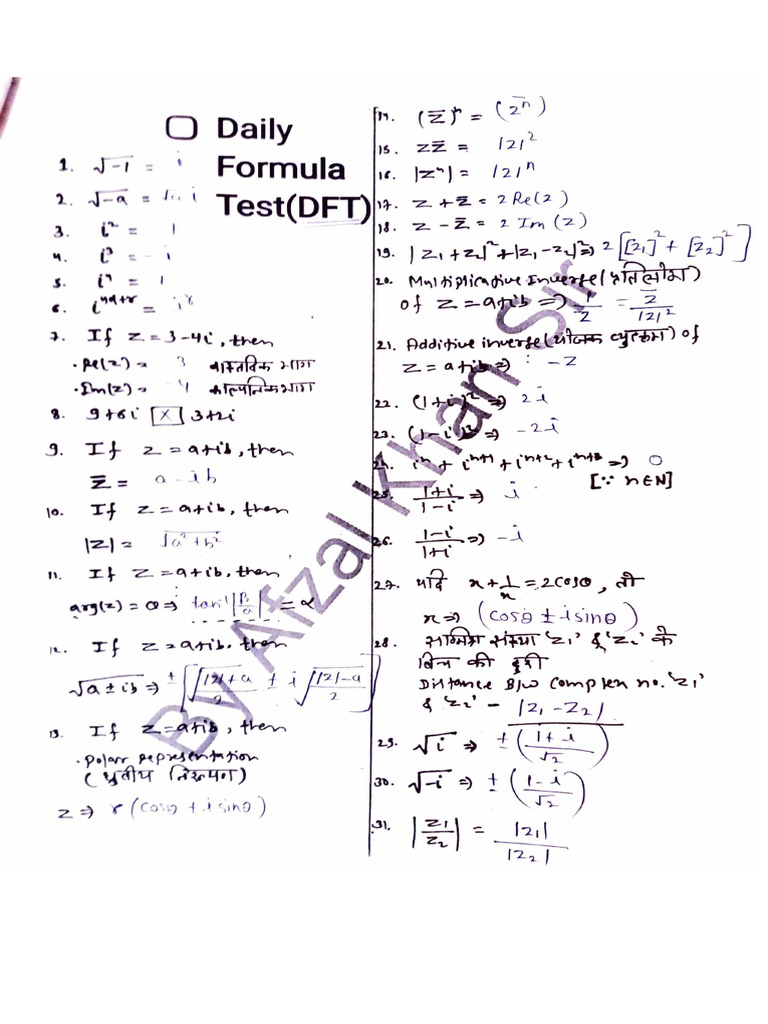 Daily
Formula
Test(DFT)
1. √-1 = i
2. √-a = √a i
3. i² = -1
4. i³ = -i
5. i⁴ = 1
6. i⁴ⁿ⁺ʳ = iʳ
7. If z = 3-4i, then
• Re(z) = 3 वास्तविक भाग
• Im(z) = -4 काल्पनिक भाग
8. 9+6i [×] 3+2i
9. If z = a+ib, then
z̄ = a-ib
10. If z = a+ib, then
|z| = √a²+b²
11. If z = a+ib, then
arg(z) = θ ⇒ tan⁻¹|β/α| = α
12. If z = a+ib, then
√a±ib ⇒ ± [√|z|+a/2 ± i √|z|-a/2]
13. If z = a+ib, then
• polar representation
(ध्रुवीय निरूपण)
z ⇒ r (cosθ + i sinθ)
14. (z̄)ⁿ = (z̄ⁿ)
15. zz̄ = |z|²
16. |zⁿ| = |z|ⁿ
17. z + z̄ = 2 Re(z)
18. z - z̄ = 2 Im (z)
19. |z₁+z₂|²+|z₁-z₂|² ⇒ 2[[z₁]² + [z₂]²]
20. Multiplicative Inverse (प्रतिलोम)
of z = a+ib ⇒ 1/z = z̄/|z|²
21. Additive inverse (योजक व्युत्क्रम) of
z = a+ib ⇒ -z
22. (1+i)² ⇒ 2i
23. (1-i)² ⇒ -2i
24. iⁿ + iⁿ⁺¹ + iⁿ⁺² + iⁿ⁺³ ⇒ 0
[∵ n∈N]
25. 1+i/1-i ⇒ i
26. 1-i/1+i ⇒ -i
27. यदि x + 1/x = 2cosθ, तो
x ⇒ (cosθ ± i sinθ)
28. सम्मिश्र संख्या 'z₁' & 'z₂' के
बिच की दुरी
Distance B/w Complex no. 'z₁'
& 'z₂' - |z₁ - z₂|
29. √i ⇒ ± (1+i/√2)
30. √-i ⇒ ± (1-i/√2)
31. |z₁/z₂| = |z₁|/|z₂|
By Afzal Khan Sir